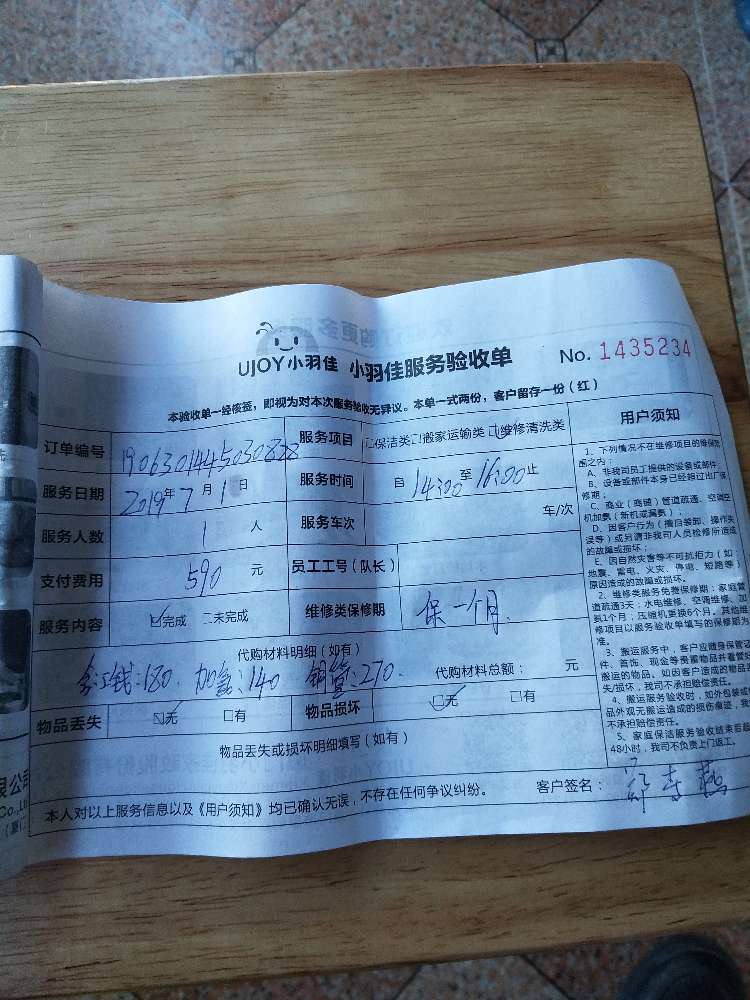 UJOY小羽佳 小羽佳服务验收单 No. 1435234
本验收单一经核签，即视为对本次服务验收无异议。本单一式两份，客户留存一份（红）
订单编号 服务项目 保洁类 搬家运输类 维修清洗类
服务日期 2019年7月1日 服务时间 自14:00至16:00止
服务人数 1 人 服务车次 车/次
支付费用 590 元 员工工号（队长）
服务内容 完成 未完成 维修类保修期 保一个月
代购材料明细（如有）
:180. 加氟:140 铜管:270. 代购材料总额： 元
物品丢失 无 有 物品损坏 无 有
物品丢失或损坏明细填写（如有）
本人对以上服务信息以及《用户须知》均已确认无误，不存在任何争议纠纷。 客户签名：
用户须知
1、下列情况不在维修项目的维保范
围之内：
A、非我司员工提供的设备或部件；
B、设备或部件本身已经超过出厂保
修期；
C、商业（商铺）管道疏通、空调空
机加氟（新机或漏氟）；
D、因客户行为（擅自装卸、操作失
误等）或另请非我司人员检修所造成
的故障或损坏；
E、因自然灾害等不可抗拒力（如
地震、雷电、火灾、停电、短路等）
原因造成的故障或损坏。
2、维修类服务免费保修期：家庭管
道疏通3天；水电维修、空调维修、加
氟1个月；压缩机更换6个月，其他维
修项目以服务验收单填写的保修期为
准。
3、搬运服务中，客户应随身保管证
件、首饰、现金等贵重物品并看管好
搬运的物品。如因客户造成的物品丢
失/损坏，我司不承担赔偿责任。
4、搬运服务验收时，如外包装或
品外观无搬运造成的损伤痕迹，我
不承担赔偿责任。
5、家庭保洁服务验收结束后超
48小时，我司不负责上门返工。
限公
Co.,Lt